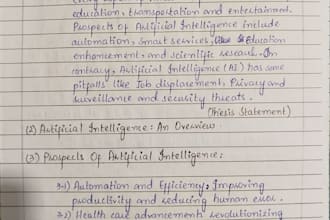 education, transportation and entertainment.
Prospects of Artificial Intelligence include
automation, smart services, education
enhancement, and scientific reseach. On
contrary, Artificial Intelligence (AI) has some
pitfalls like Job displacement, Privacy and
Surveillance and security threats.
(Thesis Statement)
(2) Artificial Intelligence: An Overview
(3) Prospects Of Artificial Intelligence:
3.1) Automation and Efficiency, Improving
productivity and reducing human error.
3.2) Health care advancements revolutionizing